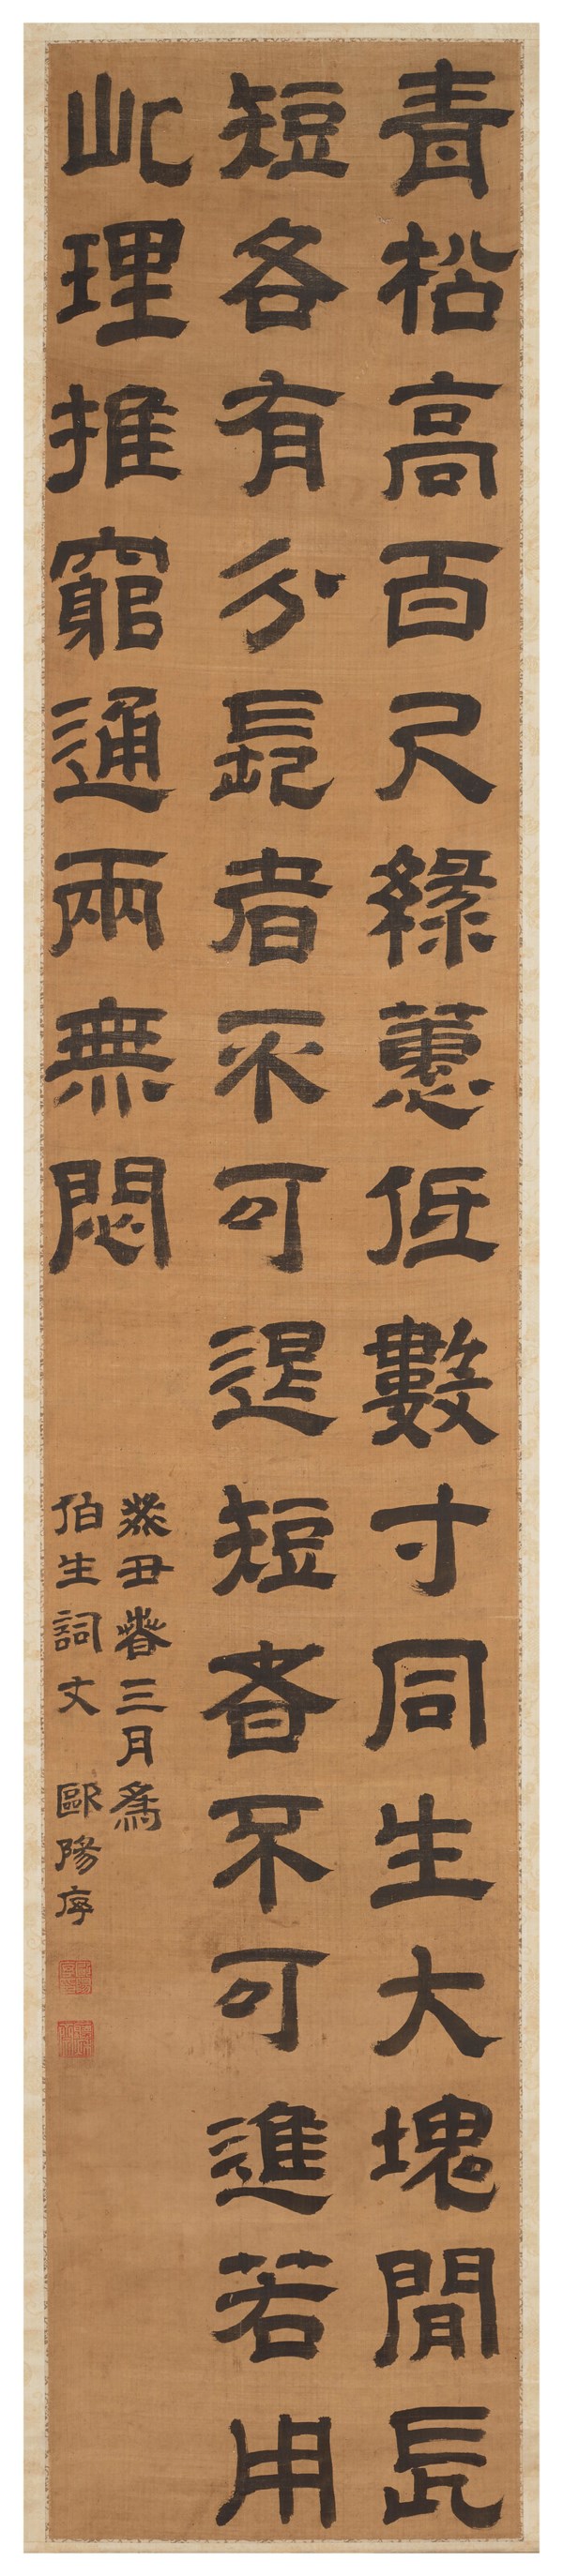 青松高百尺綠蕙低數寸同生大塊間長
短各有分長者不可退短者不可進若用
此理推窮通兩無悶
癸丑春三月為
伯生詞丈 歐陽序